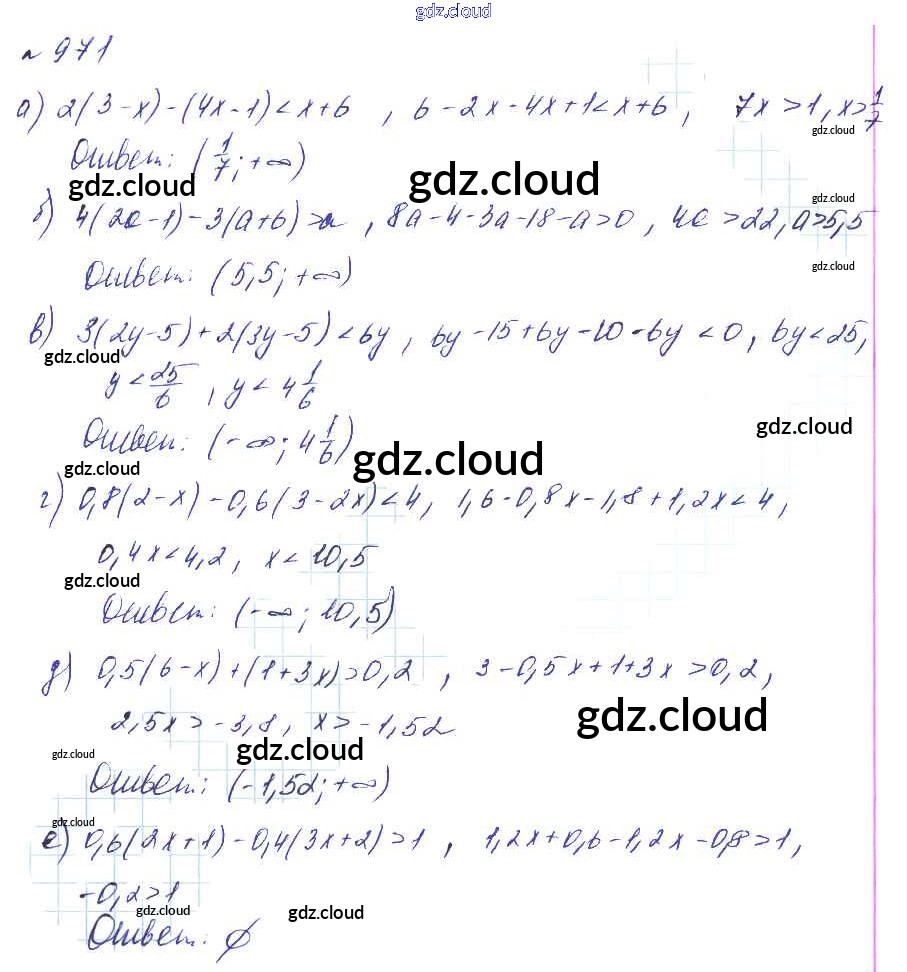 gdz.cloud
№ 971
а) 2(3-x)-(4x-1)<x+6 , 6-2x-4x+1<x+6, 7x>1, x>1/7
gdz.cloud
Ответ: (1/7; +∞)
gdz.cloud gdz.cloud gdz.cloud
б) 4(2a-1)-3(a+6)>a , 8a-4-3a-18-a>0, 4a>22, a>5,5
Ответ: (5,5; +∞) gdz.cloud
в) 3(2y-5)+2(3y-5)<6y, 6y-15+6y-10-6y<0, 6y<25,
gdz.cloud
y<25/6 , y<4 1/6
Ответ: (-∞; 4 1/6) gdz.cloud
gdz.cloud gdz.cloud
г) 0,8(2-x)-0,6(3-2x)<4, 1,6-0,8x-1,8+1,2x<4,
0,4x<4,2, x<10,5
gdz.cloud
Ответ: (-∞; 10,5)
д) 0,5(6-x)+(1+3x)>0,2 , 3-0,5x+1+3x>0,2,
2,5x>-3,8, x>-1,52 gdz.cloud
gdz.cloud gdz.cloud
Ответ: (-1,52; +∞)
gdz.cloud
е) 0,6(2x+1)-0,4(3x+2)>1 , 1,2x+0,6-1,2x-0,8>1,
-0,2>1
gdz.cloud gdz.cloud
Ответ: ∅